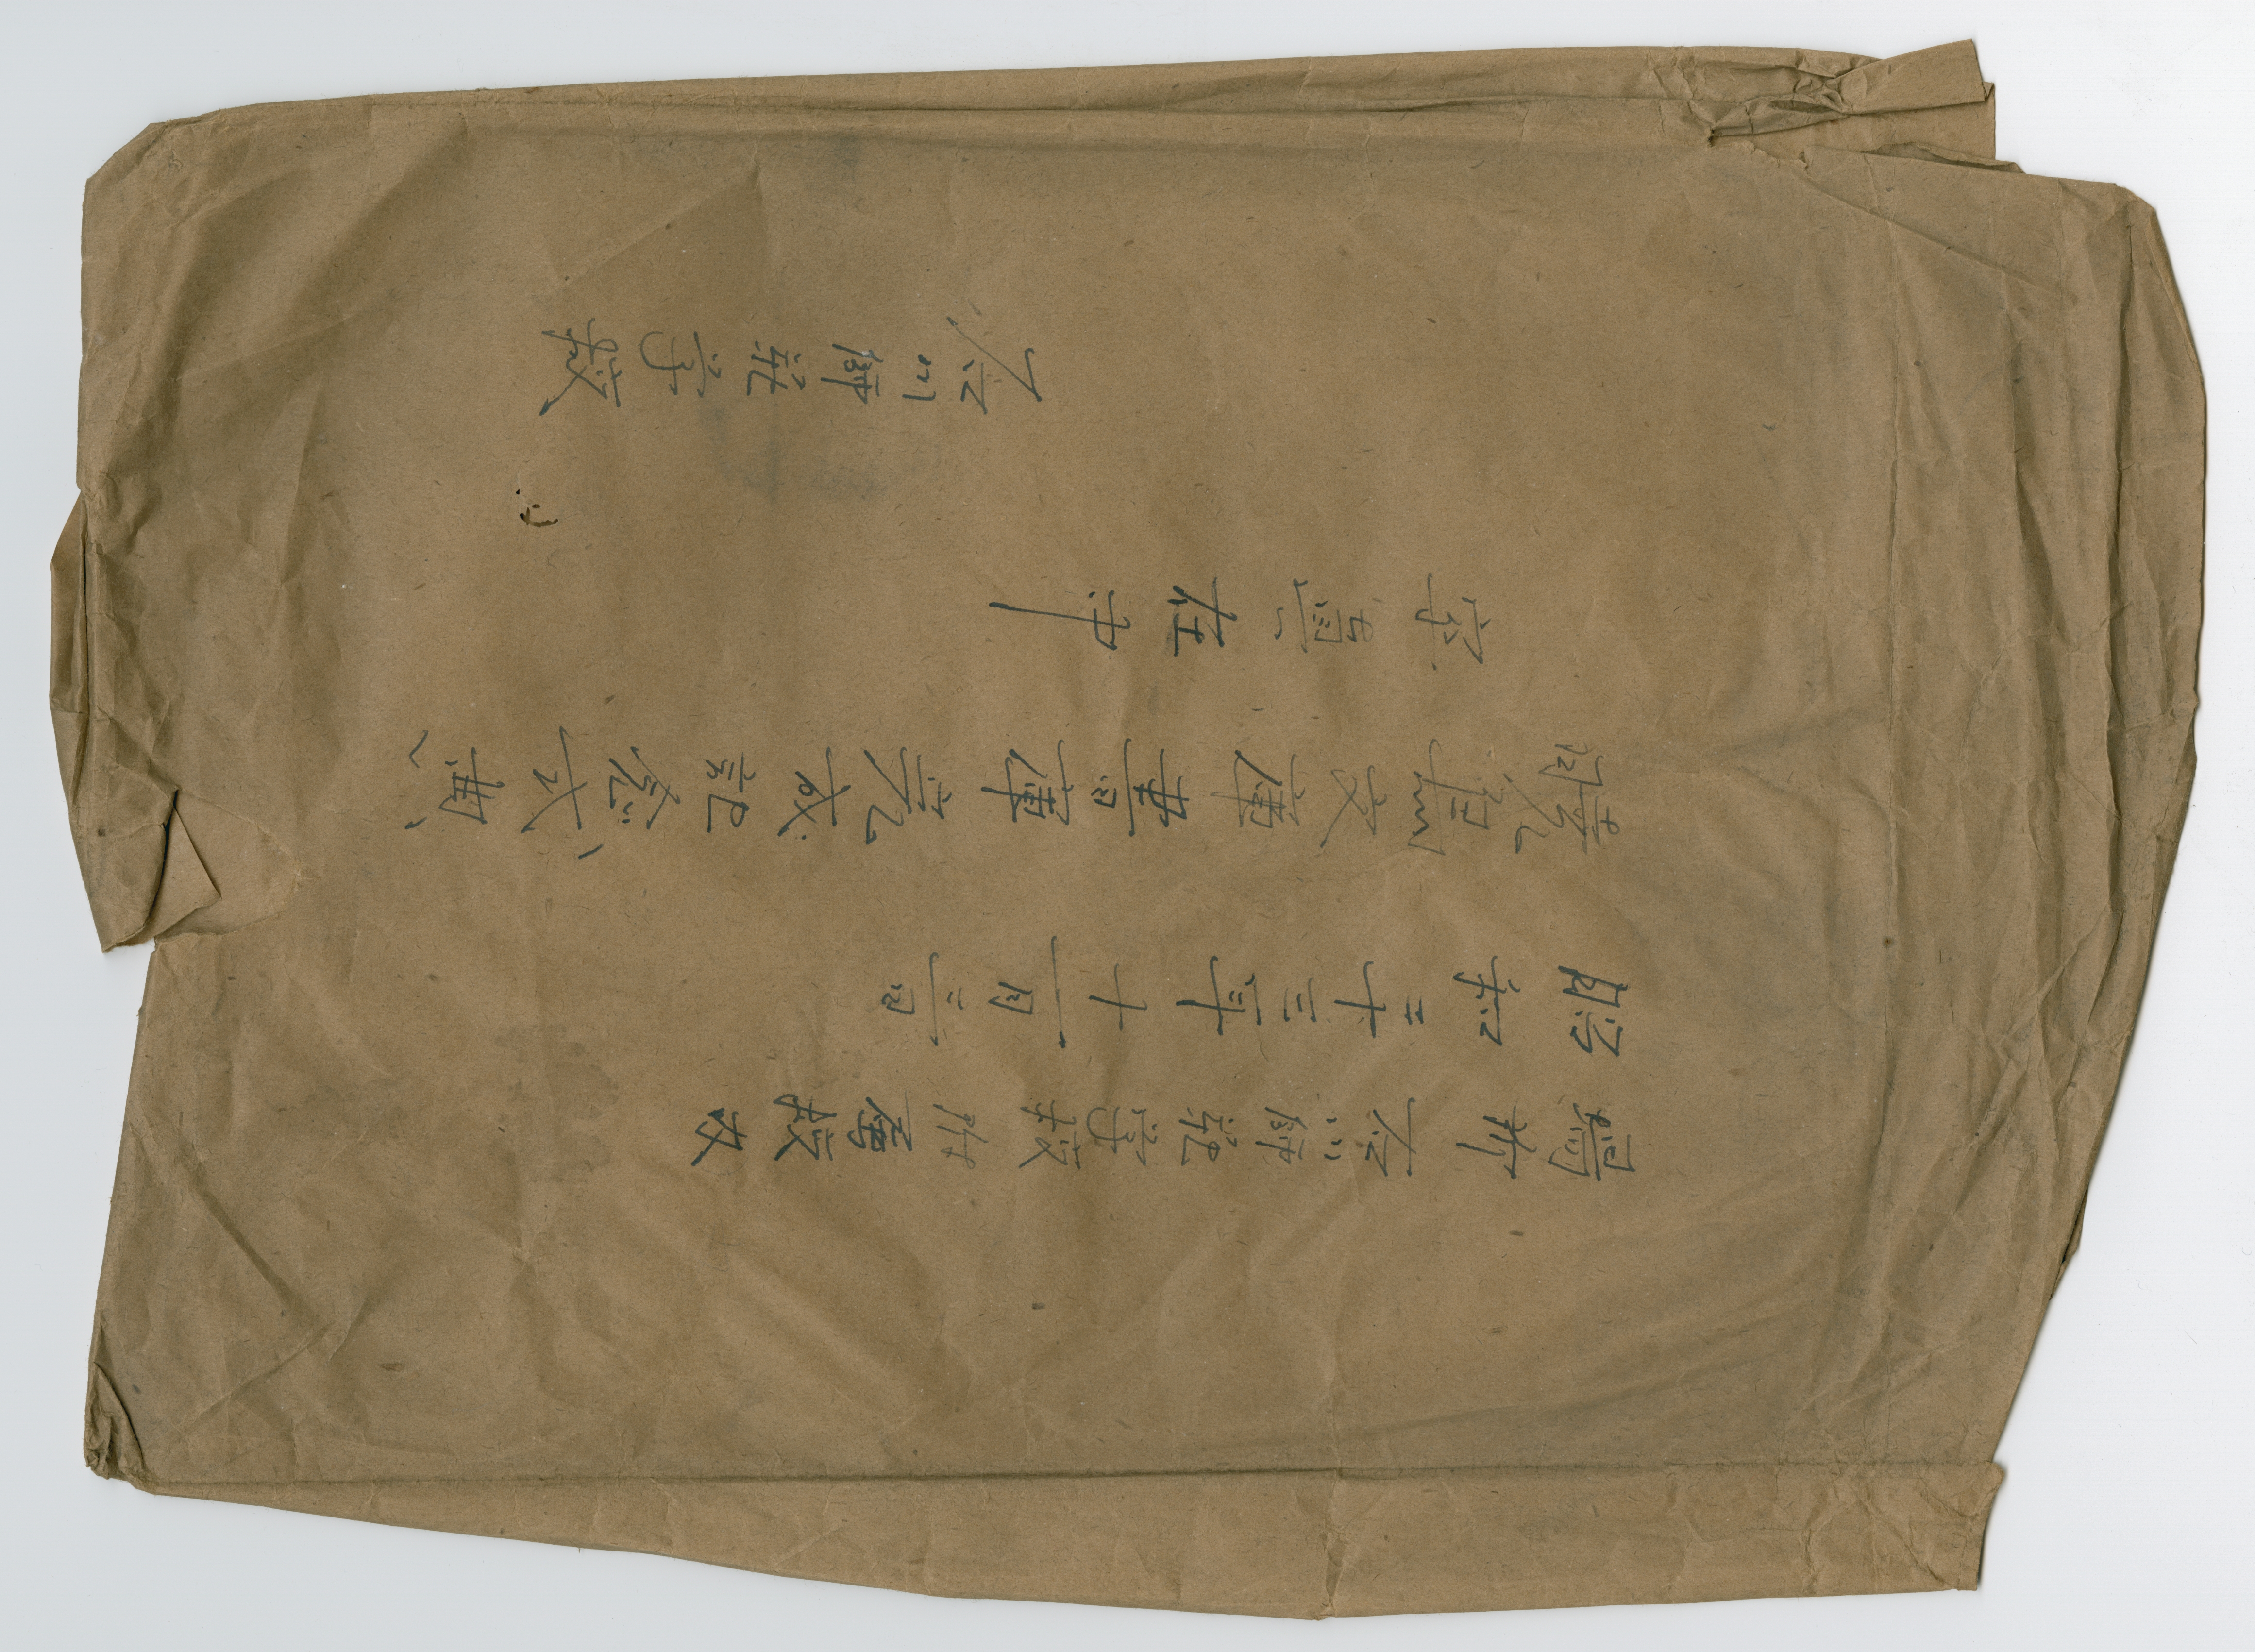 場所 石川師範学校附属校
昭和二十三年十一月三日
暁烏文庫書庫完成記念式典
写真在中
石川師範学校